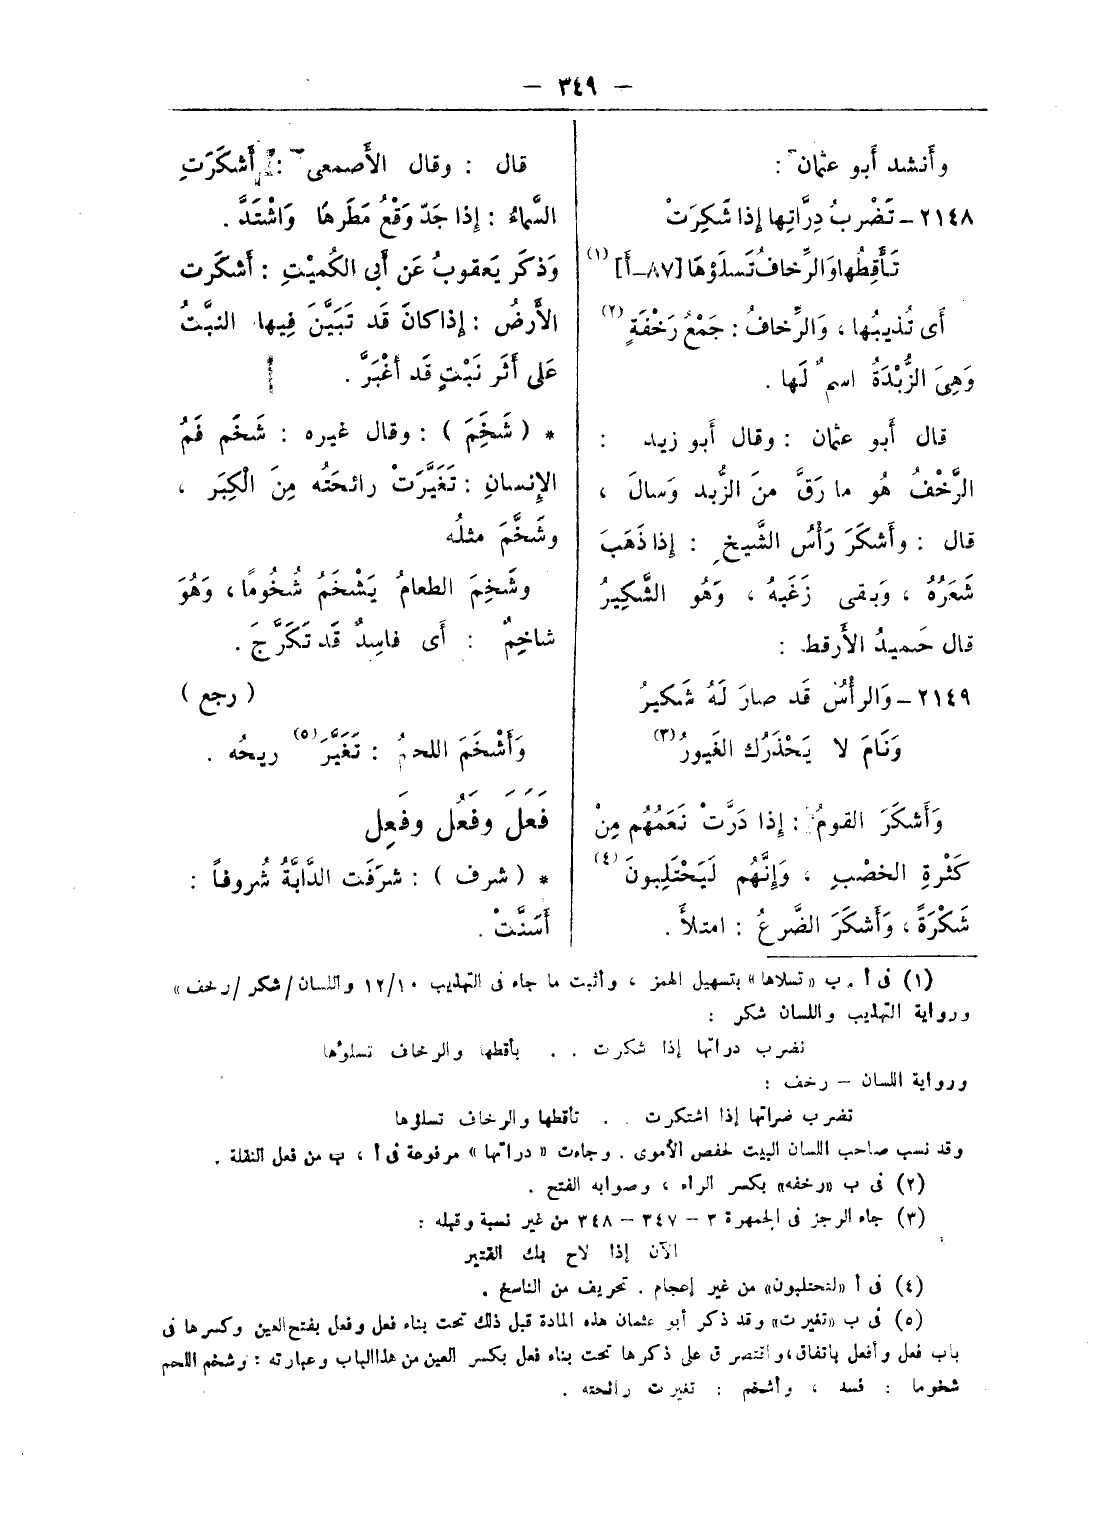 — ٣٤٩ —
وأَنشد أَبو عثمان :
٢١٤٨ – تَضْربُ دِرَّاتِها إذا شَكِرَتْ
تَأْقِطُها وَالرِّخافُ تَسلَؤهَا [٨٧–أ] (١)
أَى تُذيبُها ، وَالرِّخافُ : جَمْعُ رَخْفَةٍ (٢)
وَهِىَ الزُّبْدَةُ اسم لَها .
قال أَبو عثمان : وقال أَبو زيد :
الرَّخْفُ هُو ما رَقَّ منَ الزُّبد وَسالَ ،
قال : وأَشكَرَ رَأْسُ الشَّيخِ : إذا ذَهَبَ
شَعَرُهُ ، وَبقى زَغَبهُ ، وَهُو الشَّكِيرُ
قال حَميدُ الأَرقط :
٢١٤٩ – وَالرأْسُ قد صارَ لَهُ شَكيرُ
وَنَامَ لا يَحْذَرُك الغَيورُ (٣)
وَأَشكَرَ القومُ : إذا دَرَّتْ نَعَمُهُم مِنْ
كَثْرةِ الخصْبِ ، وَإنَّهُم لَيَحْتَلِبونَ (٤)
شَكْرَةً ، وَأَشكَرَ الضَّرعُ : امتلأَ .
قال : وقال الأَصمعى : أَشكَرَتِ
السَّماءُ : إذا جَدّ وَقْعُ مَطَرهَا وَاشْتَدَّ .
وَذكَر يَعقوبُ عَن أَبى الكُميْتِ : أَشكَرت
الأَرضُ : إذا كانَ قَد تَبَيَّنَ فِيها النبَّتُ
عَلى أَثَر نَبْتٍ قَد أغْبَرَّ .
* ( شَخَِمَ ) : وقال غيره : شَخَم فَمُ
الإنسانِ : تَغَيَّرَتْ رائحَتُه مِنَ الْكِبَر ،
وشَخَّمَ مثلُه
وشَخِمَ الطعامُ يَشْخَمُ شُخُومًا ، وَهُوَ
شاخِمٌ : أَى فاسِدٌ قَد تَكَرَّجَ .
( رجع )
وَأَشْخَمَ اللحمُ : تَغَيَّرَ (٥) ريحُه .
فَعَلَ وفَعُل وفَعِل
* ( شرف ) : شرَفَت الدَّابَّةُ شُروفاً :
أَسَنَّتْ .
(١) فى أ . ب «تسلاها» بتسهيل الهمز ، وأثبت ما جاء فى التهذيب ١٢/١٠ واللسان / شكر / رخف»
ورواية التهذيب واللسان شكر :
نضرب دراتها إذا شكرت . . بأقطها والرخاف تسلؤها
ورواية اللسان – رخف :
تضرب ضراتها إذا اشتكرت . . تأقطها والرخاف تسلؤها
وقد نسب صاحب اللسان البيت لحفص الأموى . وجاءت « دراتها » مرفوعة فى أ ، ب من فعل النقلة .
(٢) فى ب «رخفه» بكسر الراء ، وصوابه الفتح .
(٣) جاء الرجز فى الجمهرة ٣ – ٣٤٧ – ٣٤٨ من غير نسبة وقبله :
الآن إذا لاح بك القتير
(٤) فى أ «لتحتلبون» من غير إعجام . تحريف من الناسخ .
(٥) فى ب «تغيرت» وقد ذكر أبو عثمان هذه المادة قبل ذلك تحت بناء فعل وفعل بفتح العين وكسرها فى
باب فعل وأفعل باتفاق ، واقتصر ق على ذكرها تحت بناء فعل بكسر العين من هذا الباب وعبارته : وشخم اللحم
شخوما : فسد ، وأشخم : تغيرت رائحته .